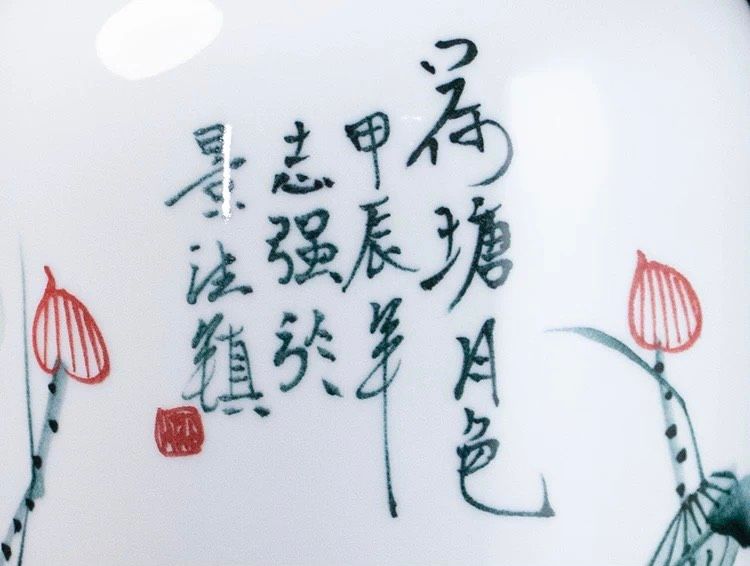 荷塘月色
甲辰年
志强於
景法鎮